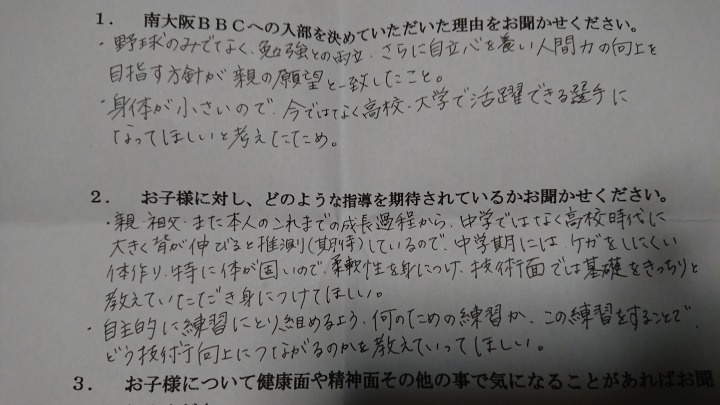 １．　南大阪ＢＢＣへの入部を決めていただいた理由をお聞かせください。
・野球のみでなく、勉強との両立、さらに自立心を養い人間力の向上を
目指す方針が親の願望と一致したこと。
・身体が小さいので、今ではなく高校・大学で活躍できる選手に
なってほしいと考えたため。
２．　お子様に対し、どのような指導を期待されているかお聞かせください。
・親・祖父・また本人のこれまでの成長過程から、中学ではなく高校時代に
大きく背が伸びると推測(期待)しているので、中学期には、ケガをしにくい
体作り、特に体が固いので、柔軟性を身につけ、技術面では基礎をきっちりと
教えていただき身につけてほしい。
・自主的に練習にとり組めるよう、何のための練習か、この練習をすることで
どう技術向上につながるのかを教えていってほしい。
３．　お子様について健康面や精神面その他の事で気になることがあればお聞